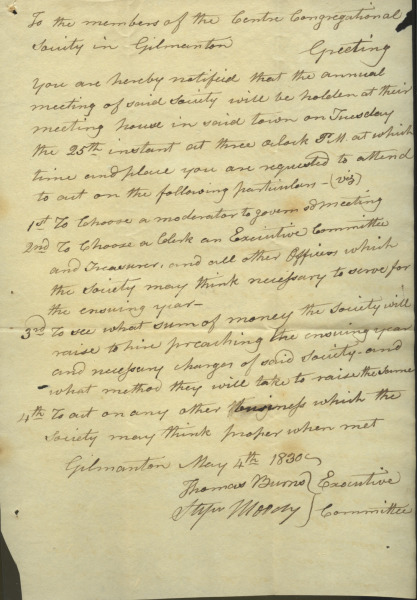 To the members of the Centre Congregational
Society in Gilmanton Greeting
You are hereby notified that the annual
meeting of said Society will be holden at their
meeting house in said town on Tuesday
the 25th instant at three oclock P.M. at which
time and place you are requested to attend
to act on the following particulars - (viz)
1st To Choose a moderator to govern sd meeting
2nd To Choose a Clerk an Executive Committee
and Treasurer, and all other Officers which
the Society may think necessary to serve for
the ensuing year—
3rd To see what sum of money the Society will
raise to hire preaching the ensuing year
and necessary charges of said Society - and
what method they will take to raise the same
4th To act on any other business which the
Society may think proper when met
Gilmanton May 4th 1830
Thomas Burns } Executive
Moody } Committee